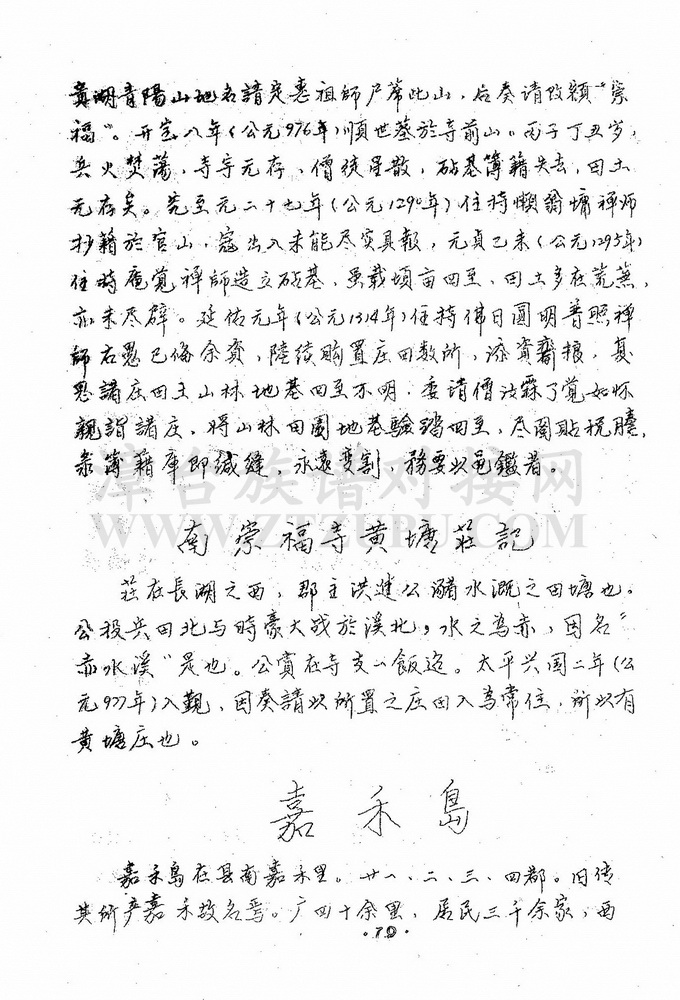 黄湖青陽山地名請定慧祖師尸蓆此山，后奏请改額“崇
福”。开宝八年（公元976年）順世墓於寺前山。丙子丁丑岁，
兵火焚蕩，寺宇元存，僧徒星散，砧基簿籍失去，田土
元存矣。先至元二十七年（公元1290年）住持懒翁墉禅师
抄籍於官山，寇出入未能尽实具報，元貞乙未（公元1295年）
住持庵觉禅師造立砧基，虽载頃亩四至，田土多在荒蕪，
亦未尽辟。延佑元年（公元1314年）住持佛日圓明普照禅
師右愚已俻余资，陸续购置庄田数所，添資齋粮，
思諸庄田土山林地基四至不明，委请僧汝霖了覚如怀
親詣諸庄，将山林田園地基驗踏四至，尽開貼税
彔簿籍庫印缄缝，永遠，務要以邑鑑者。
南崇福寺黄塘莊記
莊在長湖之西，郡主洪進公瀦水溉之田塘也。
公投兵田北与時豪大战於溪北，水之為赤，因名“
赤水溪”是也。公賞在寺支一飯迄。太平兴国二年（公
元977年）入觐，因奏請以所置之庄田入為常住，所以有
黄塘庄也。
嘉禾島
嘉禾島在县南嘉禾里。廿一、二、三、四都。旧传
其所产嘉禾故名焉。广四十余里，居民三千余家，西
·79·
漳台族谱对接网
WWW.ZTZUPU.COM